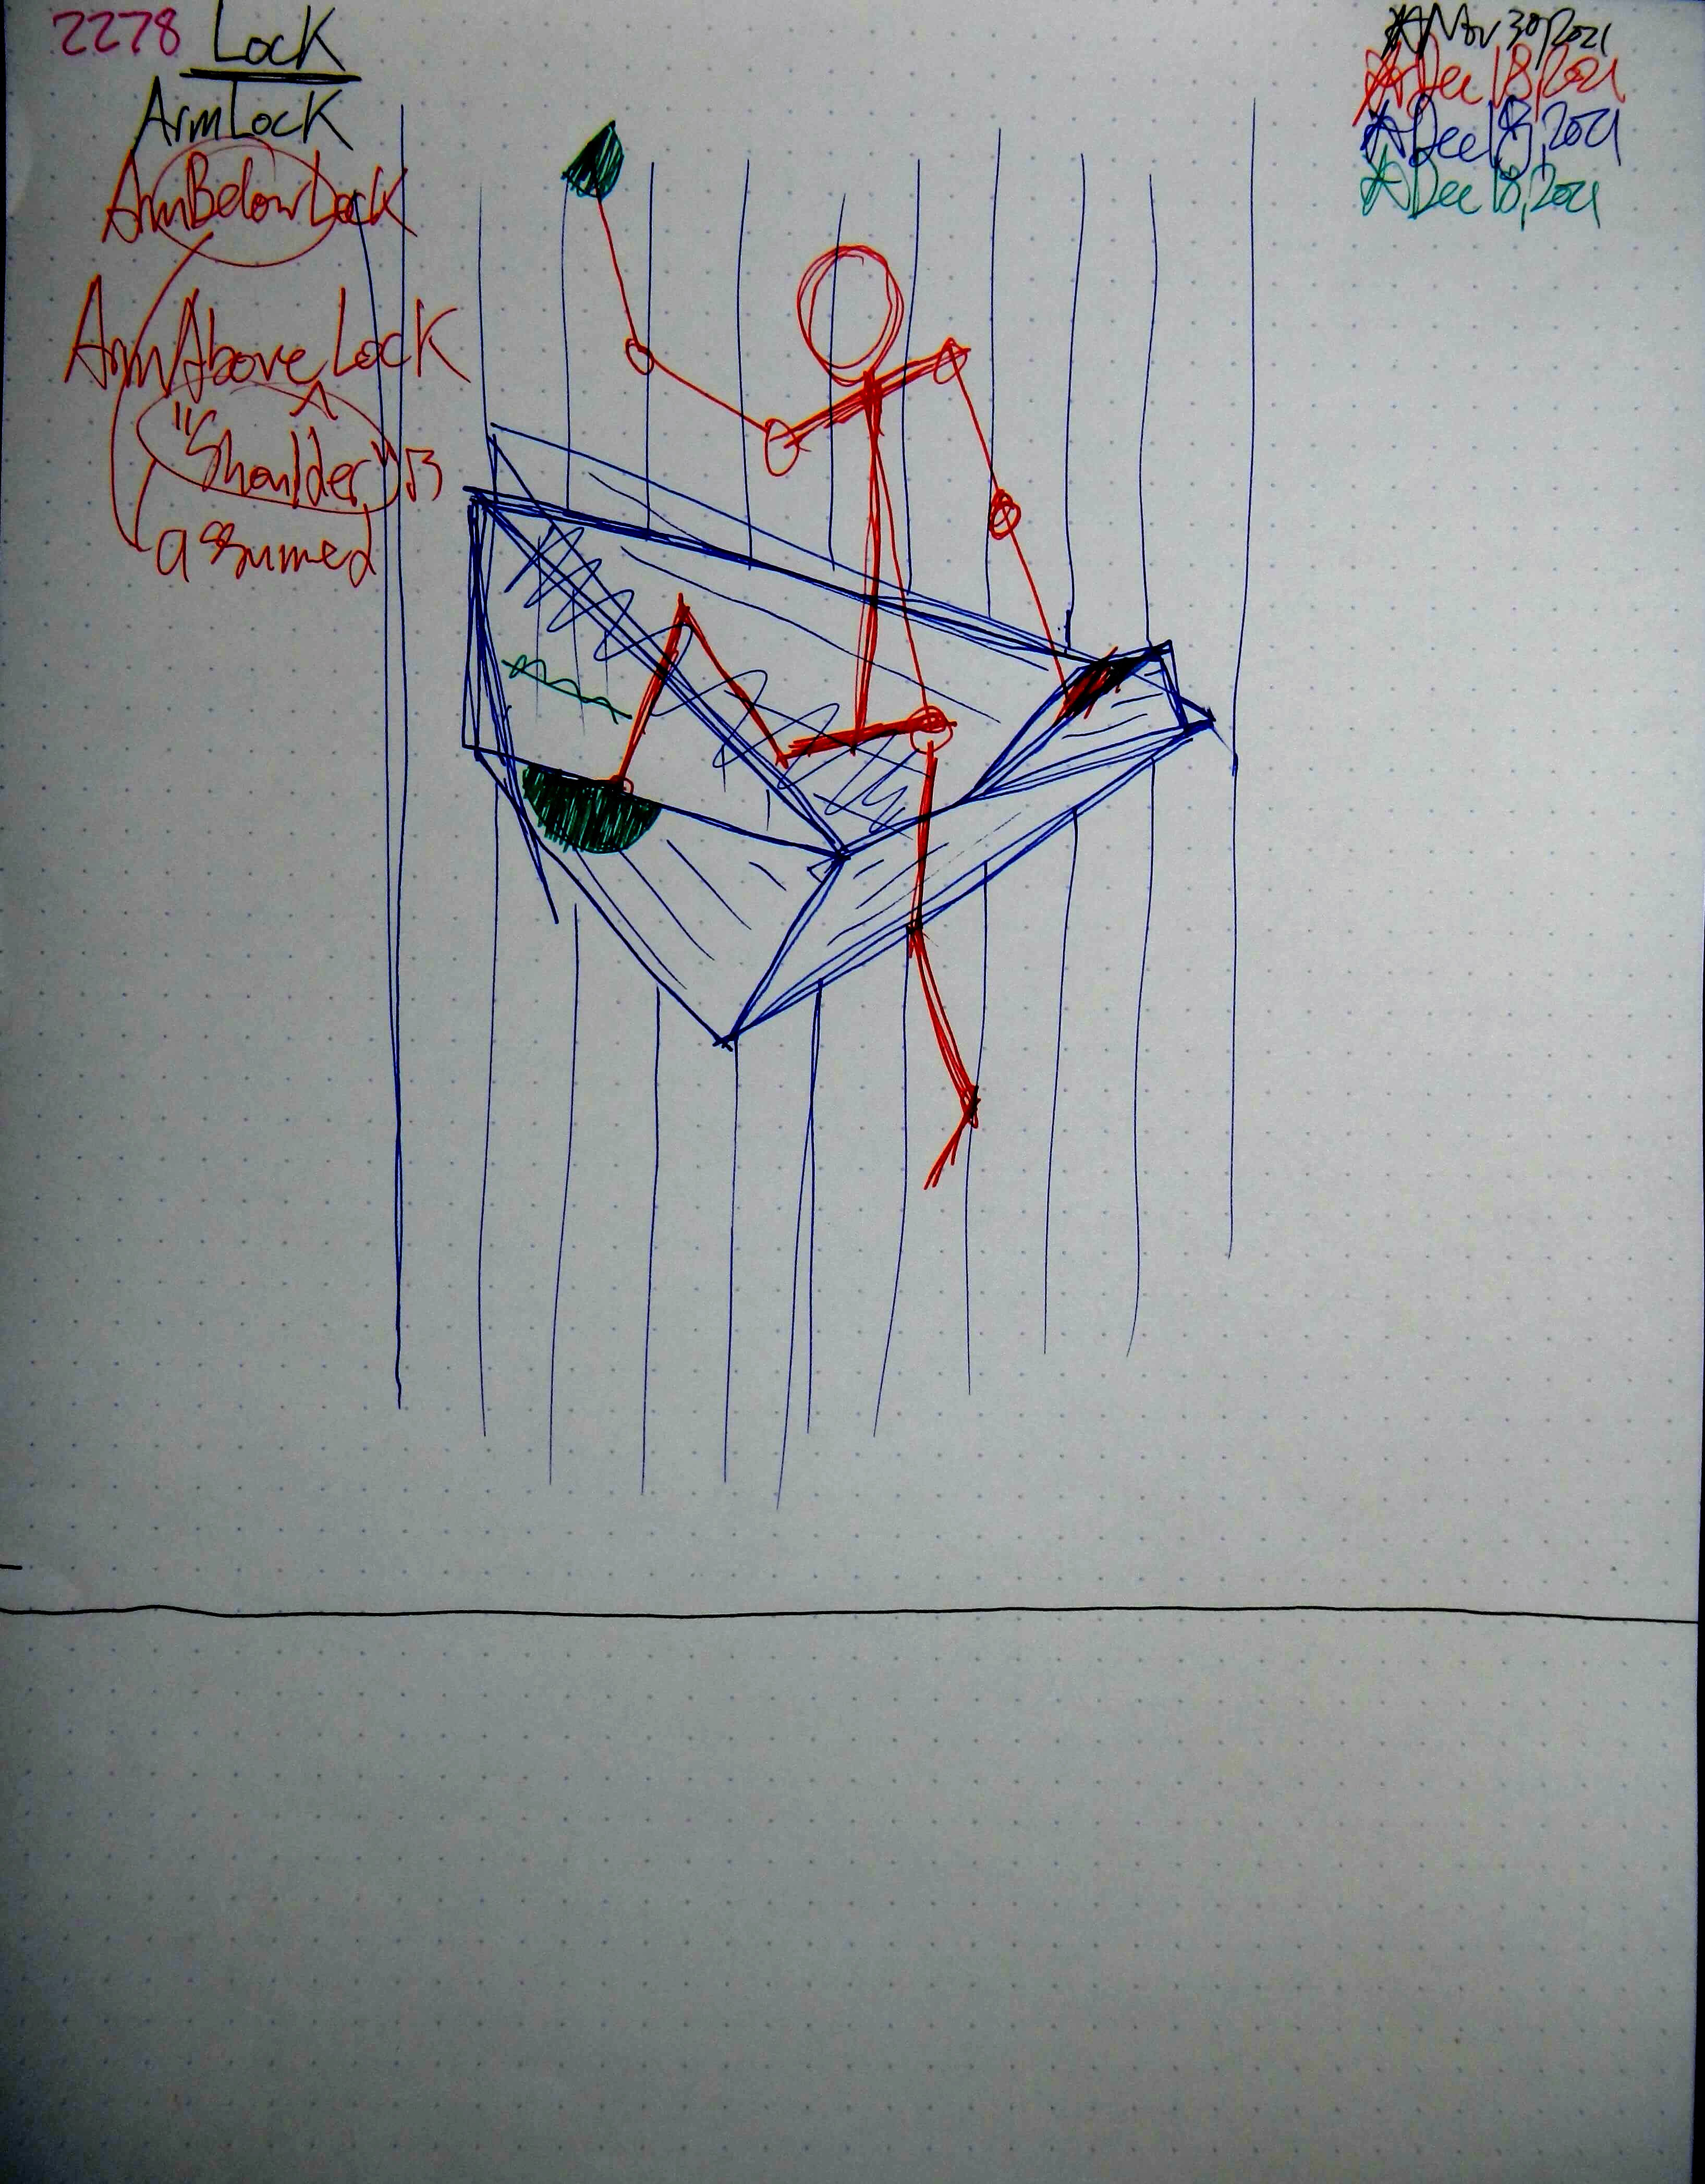 2278 Lock
ArmLock
ArmBelowLock
ArmAboveLock
^
"Shoulder" is
assumed
Nov 30, 2021
Dec 18, 2021
Dec 18, 2021
Dec 18, 2021